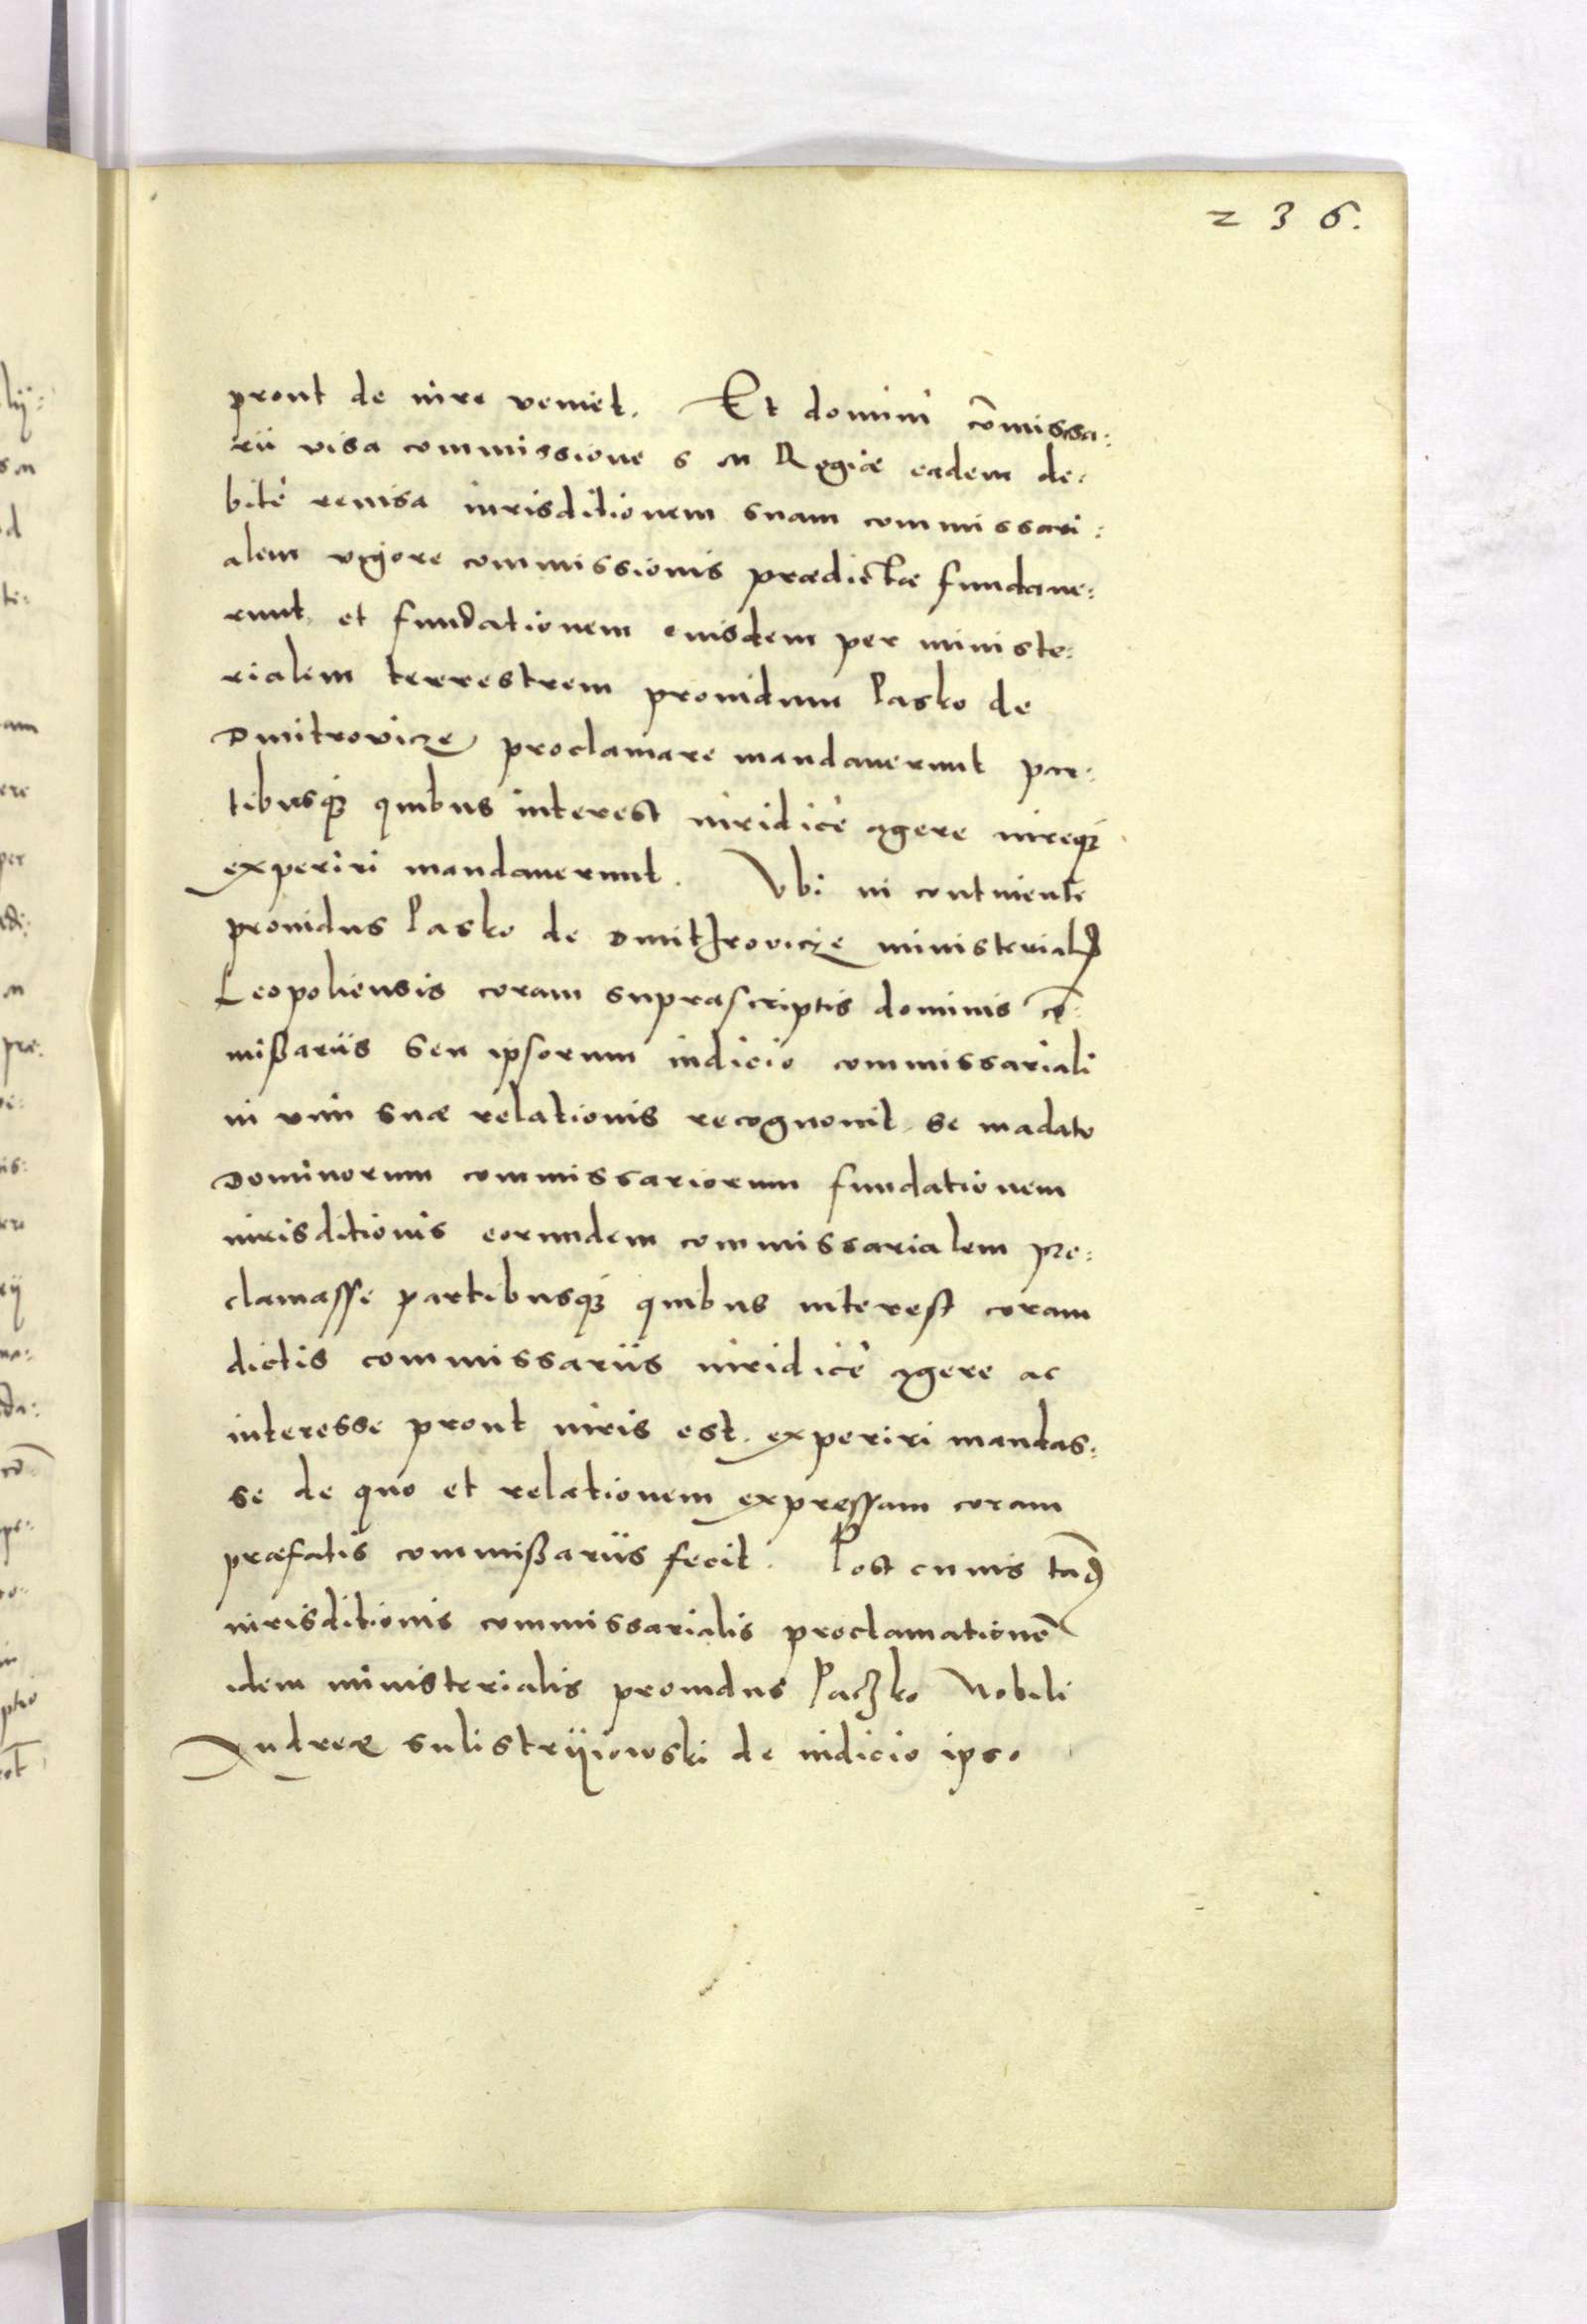 236.
prout de iure veniet. Et domini cōmissa:
rii visa commissione s m Regiæ eadem de:
bitè reuisa iurisditionem suam commissari:
alem vigore commissionis prædictæ fundaue:
runt, et fundationem eiusdem per ministe:
rialem terrestrem prouidum Pasko de
Dmitrovicze proclamare mandauerunt par:
tibusq́ꝫ quibus interest iuridicè agere iureq́ꝫ
experiri mandauerunt. Vbi in continenti
prouidus Pasko de Dmithrovicze ministerialꝭ
Leopoliensis coram suprascriptis dominis cō:
mißariis seu ipsorum iudicio commissariali
in vim suæ relationis recognouit, se mādato
Dominorum commissariorum fundationem
iurisditionis eorundem commissarialem pro:
clamasse partibusq́ꝫ quibus interest coram
dictis commissariis iuridicè agere ac
interesse prout iuris est. experiri mandas:
se de quo et relationem expressam coram
præfatis commißariis fecit. Post cuius tādē
iurisditionis commissarialis proclamationē
idem ministerialis prouidus Paczko Nobili
Andreæ Sulistryiowski de iudicio ipso